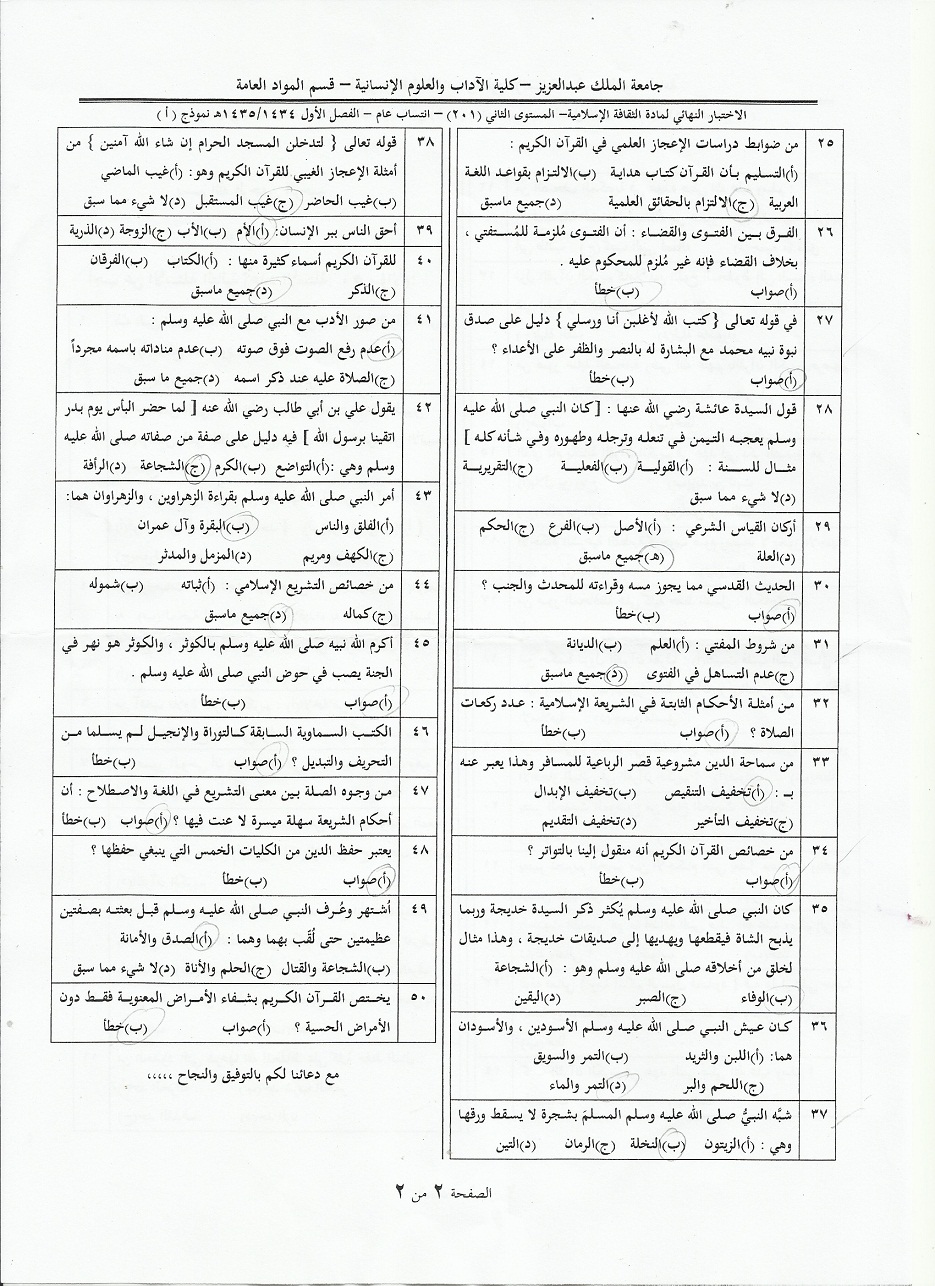 جامعة الملك عبدالعزيز – كلية الآداب والعلوم الإنسانية – قسم المواد العامة
الاختبار النهائي لمادة الثقافة الإسلامية– المستوى الثاني (٢٠١) – انتساب عام – الفصل الأول ١٤٣٥/١٤٣٤هـ نموذج (أ)
٢٥ من ضوابط دراسات الإعجاز العلمي في القرآن الكريم :
(أ)التسليم بأن القرآن كتاب هداية (ب)الالتزام بقواعد اللغة
العربية (ج)الالتزام بالحقائق العلمية (د)جميع ماسبق
٢٦ الفرق بين الفتوى والقضاء : أن الفتوى مُلزمة للمُستفتي ،
بخلاف القضاء فإنه غير مُلزم للمحكوم عليه .
(أ)صواب (ب)خطأ
٢٧ في قوله تعالى { كتب الله لأغلبن أنا ورسلي } دليل على صدق
نبوة نبيه محمد مع البشارة له بالنصر والظفر على الأعداء ؟
(أ)صواب (ب)خطأ
٢٨ قول السيدة عائشة رضي الله عنها : [كان النبي صلى الله عليه
وسلم يعجبه التيمن في تنعله وترجله وطهوره وفي شأنه كله ]
مثال للسنة : (أ)القولية (ب)الفعلية (ج)التقريرية
(د)لا شيء مما سبق
٢٩ أركان القياس الشرعي : (أ)الأصل (ب)الفرع (ج)الحكم
(د)العلة (هـ)جميع ماسبق
٣٠ الحديث القدسي مما يجوز مسه وقراءته للمحدث والجنب ؟
(أ)صواب (ب)خطأ
٣١ من شروط المفتي : (أ)العلم (ب)الديانة
(ج)عدم التساهل في الفتوى (د)جميع ماسبق
٣٢ من أمثلة الأحكام الثابتة في الشريعة الإسلامية : عدد ركعات
الصلاة ؟ (أ)صواب (ب)خطأ
٣٣ من سماحة الدين مشروعية قصر الرباعية للمسافر وهذا يعبر عنه
بـ : (أ)تخفيف التنقيص (ب)تخفيف الإبدال
(ج)تخفيف التأخير (د)تخفيف التقديم
٣٤ من خصائص القرآن الكريم أنه منقول إلينا بالتواتر ؟
(أ)صواب (ب)خطأ
٣٥ كان النبي صلى الله عليه وسلم يُكثر ذكر السيدة خديجة وربما
يذبح الشاة فيقطعها ويهديها إلى صديقات خديجة ، وهذا مثال
لخلق من أخلاقه صلى الله عليه وسلم وهو : (أ)الشجاعة
(ب)الوفاء (ج)الصبر (د)اليقين
٣٦ كان عيش النبي صلى الله عليه وسلم الأسودين ، والأسودان
هما: (أ)اللبن والثريد (ب)التمر والسويق
(ج)اللحم والبر (د)التمر والماء
٣٧ شبَّه النبيُّ صلى الله عليه وسلم المسلمَ بشجرة لا يسقط ورقها
وهي : (أ)الزيتون (ب)النخلة (ج)الرمان (د)التين
٣٨ قوله تعالى { لتدخلن المسجد الحرام إن شاء الله آمنين } من
أمثلة الإعجاز الغيبي للقرآن الكريم وهو: (أ)غيب الماضي
(ب)غيب الحاضر (ج)غيب المستقبل (د)لا شيء مما سبق
٣٩ أحق الناس ببر الإنسان: (أ)الأم (ب)الأب (ج)الزوجة (د)الذرية
٤٠ للقرآن الكريم أسماء كثيرة منها : (أ)الكتاب (ب)الفرقان
(ج)الذكر (د)جميع ماسبق
٤١ من صور الأدب مع النبي صلى الله عليه وسلم :
(أ)عدم رفع الصوت فوق صوته (ب)عدم مناداته باسمه مجرداً
(ج)الصلاة عليه عند ذكر اسمه (د)جميع ما سبق
٤٢ يقول علي بن أبي طالب رضي الله عنه [ لما حضر البأس يوم بدر
اتقينا برسول الله ] فيه دليل على صفة من صفاته صلى الله عليه
وسلم وهي :(أ)التواضع (ب)الكرم (ج)الشجاعة (د)الرأفة
٤٣ أمر النبي صلى الله عليه وسلم بقراءة الزهراوين ، والزهراوان هما:
(أ)الفلق والناس (ب)البقرة وآل عمران
(ج)الكهف ومريم (د)المزمل والمدثر
٤٤ من خصائص التشريع الإسلامي : (أ)ثباته (ب)شموله
(ج)كماله (د)جميع ماسبق
٤٥ أكرم الله نبيه صلى الله عليه وسلم بالكوثر ، والكوثر هو نهر في
الجنة يصب في حوض النبي صلى الله عليه وسلم .
(أ)صواب (ب)خطأ
٤٦ الكتب السماوية السابقة كالتوراة والإنجيل لم يسلما من
التحريف والتبديل ؟ (أ)صواب (ب)خطأ
٤٧ من وجوه الصلة بين معنى التشريع في اللغة والاصطلاح : أن
أحكام الشريعة سهلة ميسرة لا عنت فيها ؟ (أ)صواب (ب)خطأ
٤٨ يعتبر حفظ الدين من الكليات الخمس التي ينبغي حفظها ؟
(أ)صواب (ب)خطأ
٤٩ اُشتهر وعُرف النبي صلى الله عليه وسلم قبل بعثته بصفتين
عظيمتين حتى لُقِّب بهما وهما : (أ)الصدق والأمانة
(ب)الشجاعة والقتال (ج)الحلم والأناة (د)لا شيء مما سبق
٥٠ يختص القرآن الكريم بشفاء الأمراض المعنوية فقط دون
الأمراض الحسية ؟ (أ)صواب (ب)خطأ
مع دعائنا لكم بالتوفيق والنجاح ،،،،،
الصفحة ٢ من ٢